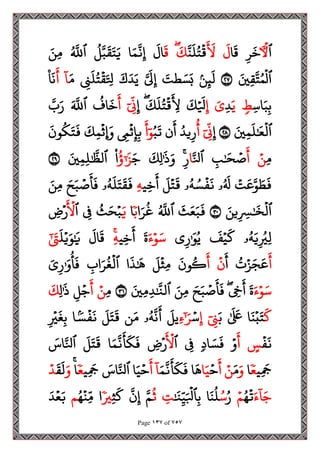 ٱلْأٓخَرِ قَالَ لَأَقْتُلَنَّكَ ۖ قَالَ إِنَّمَا يَتَقَبَّلُ ٱللَّهُ مِنَ
ٱلْمُتَّقِينَ ٢٧ لَئِنۢ بَسَطتَ إِلَىَّ يَدَكَ لِتَقْتُلَنِى مَآ أَنَا۠
بِبَاسِطٍ يَدِىَ إِلَيْكَ لِأَقْتُلَكَ ۖ إِنِّىٓ أَخَافُ ٱللَّهَ رَبَّ
ٱلْعَٰلَمِينَ ٢٨ إِنِّىٓ أُرِيدُ أَن تَبُوٓأَ بِإِثْمِى وَإِثْمِكَ فَتَكُونَ
مِنْ أَصْحَٰبِ ٱلنَّارِ ۚ وَذَٰلِكَ جَزَٰٓؤُا۟ ٱلظَّٰلِمِينَ ٢٩
فَطَوَّعَتْ لَهُۥ نَفْسُهُۥ قَتْلَ أَخِيهِ فَقَتَلَهُۥ فَأَصْبَحَ مِنَ
ٱلْخَٰسِرِينَ ٣٠ فَبَعَثَ ٱللَّهُ غُرَابًا يَبْحَثُ فِى ٱلْأَرْضِ
لِيُرِيَهُۥ كَيْفَ يُوَٰرِى سَوْءَةَ أَخِيهِ ۚ قَالَ يَٰوَيْلَتَىٰٓ
أَعَجَزْتُ أَنْ أَكُونَ مِثْلَ هَٰذَا ٱلْغُرَابِ فَأُوَٰرِىَ
سَوْءَةَ أَخِى ۖ فَأَصْبَحَ مِنَ ٱلنَّٰدِمِينَ ٣١ مِنْ أَجْلِ ذَٰلِكَ
كَتَبْنَا عَلَىٰ بَنِىٓ إِسْرَٰٓءِيلَ أَنَّهُۥ مَن قَتَلَ نَفْسًۢا بِغَيْرِ
نَفْسٍ أَوْ فَسَادٍ فِى ٱلْأَرْضِ فَكَأَنَّمَا قَتَلَ ٱلنَّاسَ
جَمِيعًا وَمَنْ أَحْيَاهَا فَكَأَنَّمَآ أَحْيَا ٱلنَّاسَ جَمِيعًا ۚ وَلَقَدْ
جَآءَتْهُمْ رُسُلُنَا بِٱلْبَيِّنَٰتِ ثُمَّ إِنَّ كَثِيرًا مِّنْهُم بَعْدَ
Page ١٣٧ of ٧٥٧